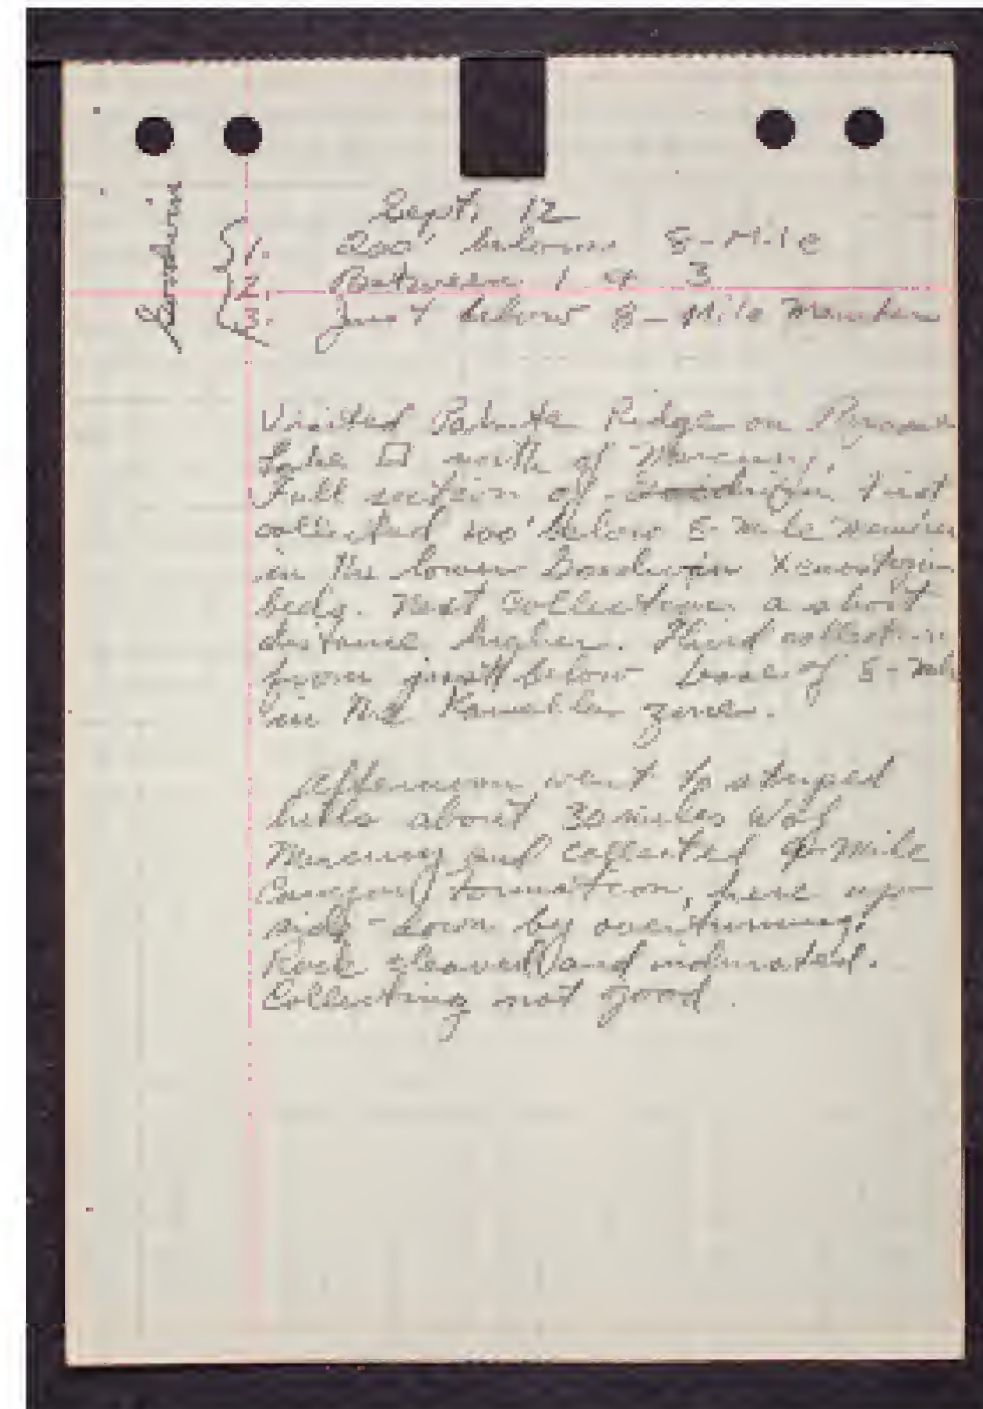 Goodwin
Sept. 12
1. 200' below 8-Mile
2. Between 1 & 3
3. Just below 8-Mile Member
Visited Ridge on
Lake □ north of Mercury.
Full section of Goodwin, first
collected 200' below 8-Mile Member
in the lower Goodwin
beds. Next collection a short
distance higher. Third collection
from just below base of 8-Mile
in the zone.
Afternoon went to striped
hills about 30 miles W of
Mercury and collected 9-Mile
Canyon formation, here up-
side-down by overturning.
Rock cleaved and indurated.
Collecting not good.